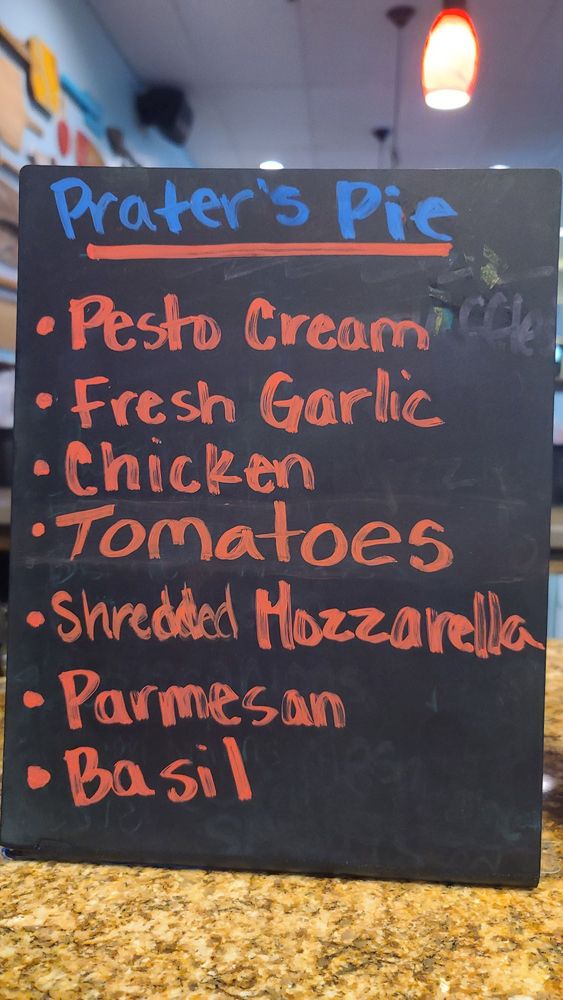 Prater's Pie
• Pesto Cream
• Fresh Garlic
• Chicken
• Tomatoes
• Shredded Mozzarella
• Parmesan
• Basil